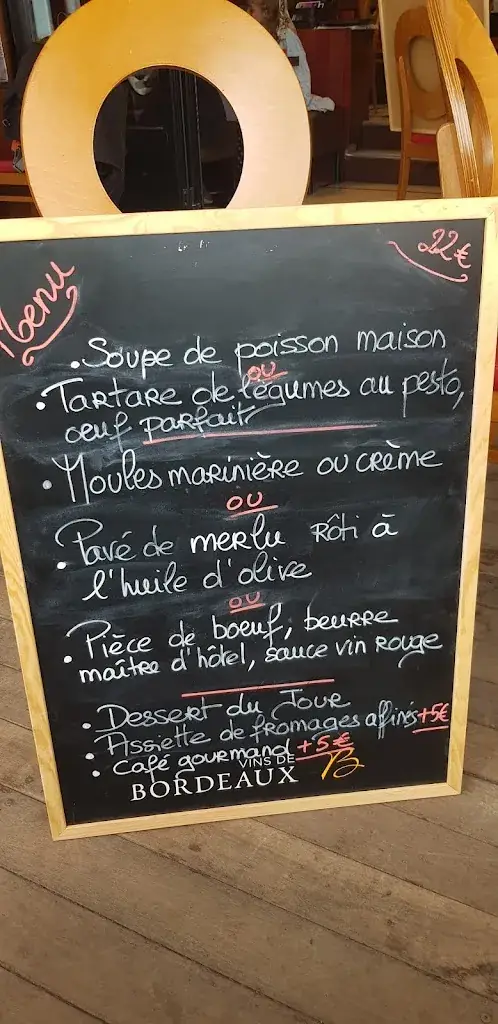 Menu
22€
• Soupe de poisson maison
ou
• Tartare de légumes au pesto,
oeuf parfait
• Moules marinière ou crème
ou
• Pavé de merlu rôti à
l'huile d'olive
ou
• Pièce de boeuf, beurre
maître d'hôtel, sauce vin rouge
• Dessert du Jour
• Assiette de fromages affinés +5€
• Café gourmand +5€
VINS DE
BORDEAUX B